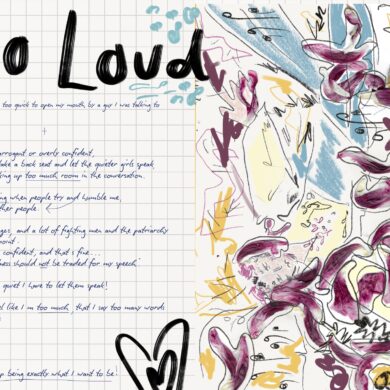 o Loud
too quick to open my mouth, by a guy I was talking to
arrogant or overly confident,
take a back seat and let the quieter girls speak
king up too much room in the conversation.
ing when people try and humble me,
ther people.
ges, and a lot of fighting men and the patriarchy
oint.
confident, and that's fine...
ness should not be traded for my speech.
quiet I have to let them speak!
el like I'm too much, that I say too many words
p being exactly what I want to be.